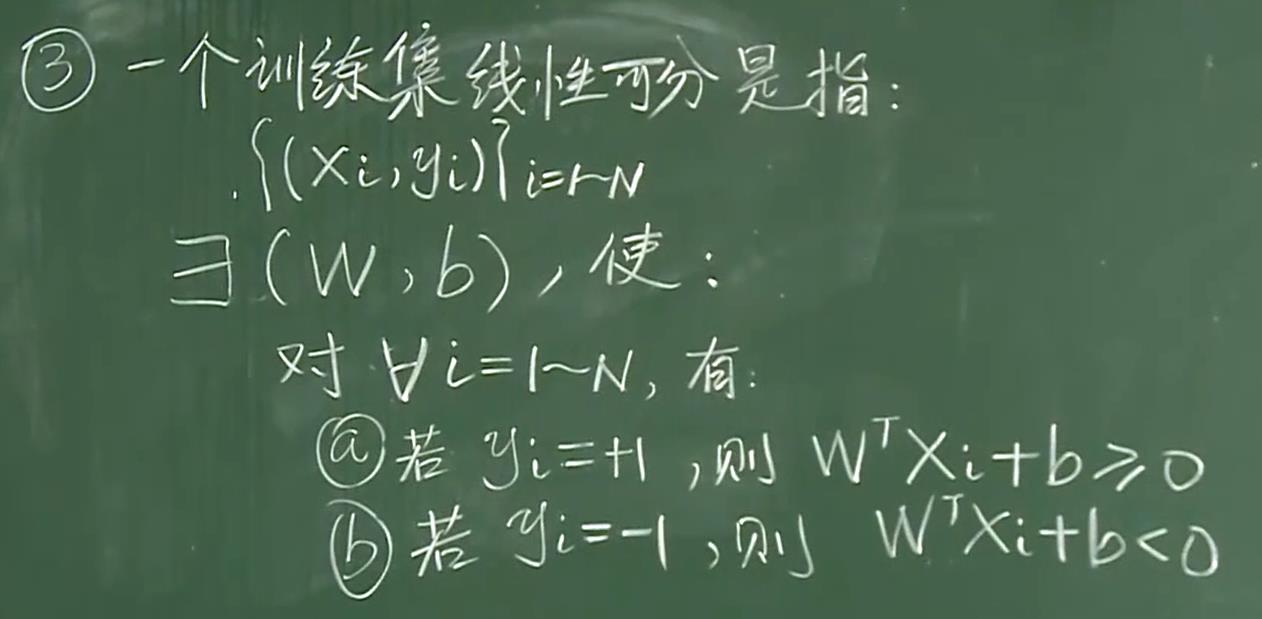 ③一个训练集线性可分是指:
{(Xi,yi)}i=1~N
∃(W,b),使:
对∀i=1~N,有:
ⓐ若 yi=+1,则 WᵀXi+b≥0
ⓑ若 yi=-1,则 WᵀXi+b<0